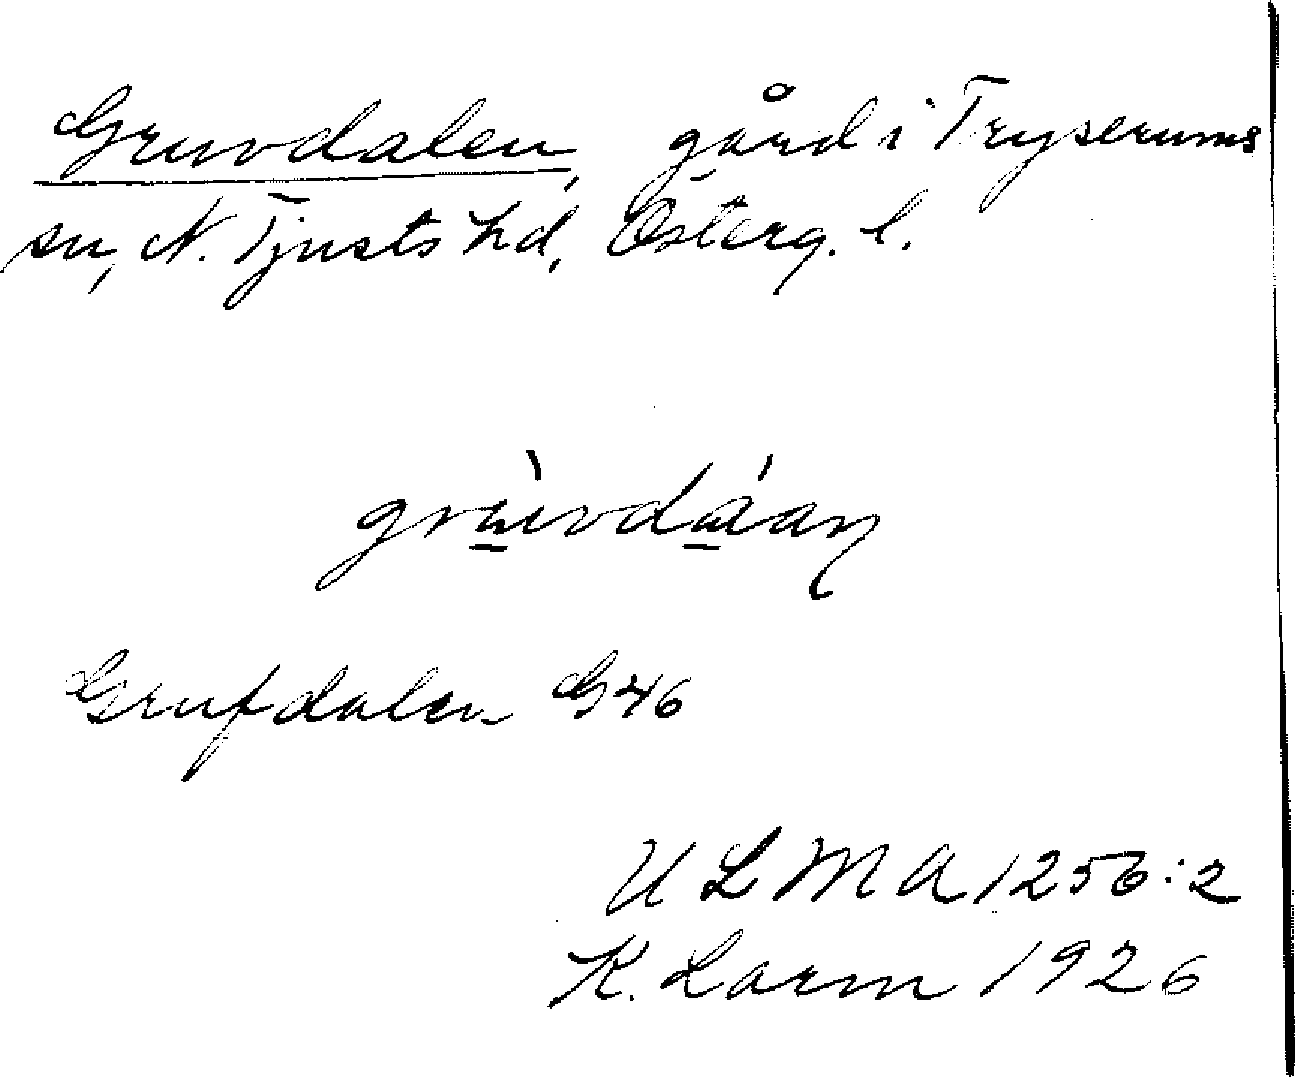 Gruvdalen, gård i Tryserums
sn, N. Tjusts hd, Österg. l.
Grufdalen G46
U L M A 1256:2
K. Larm 1926